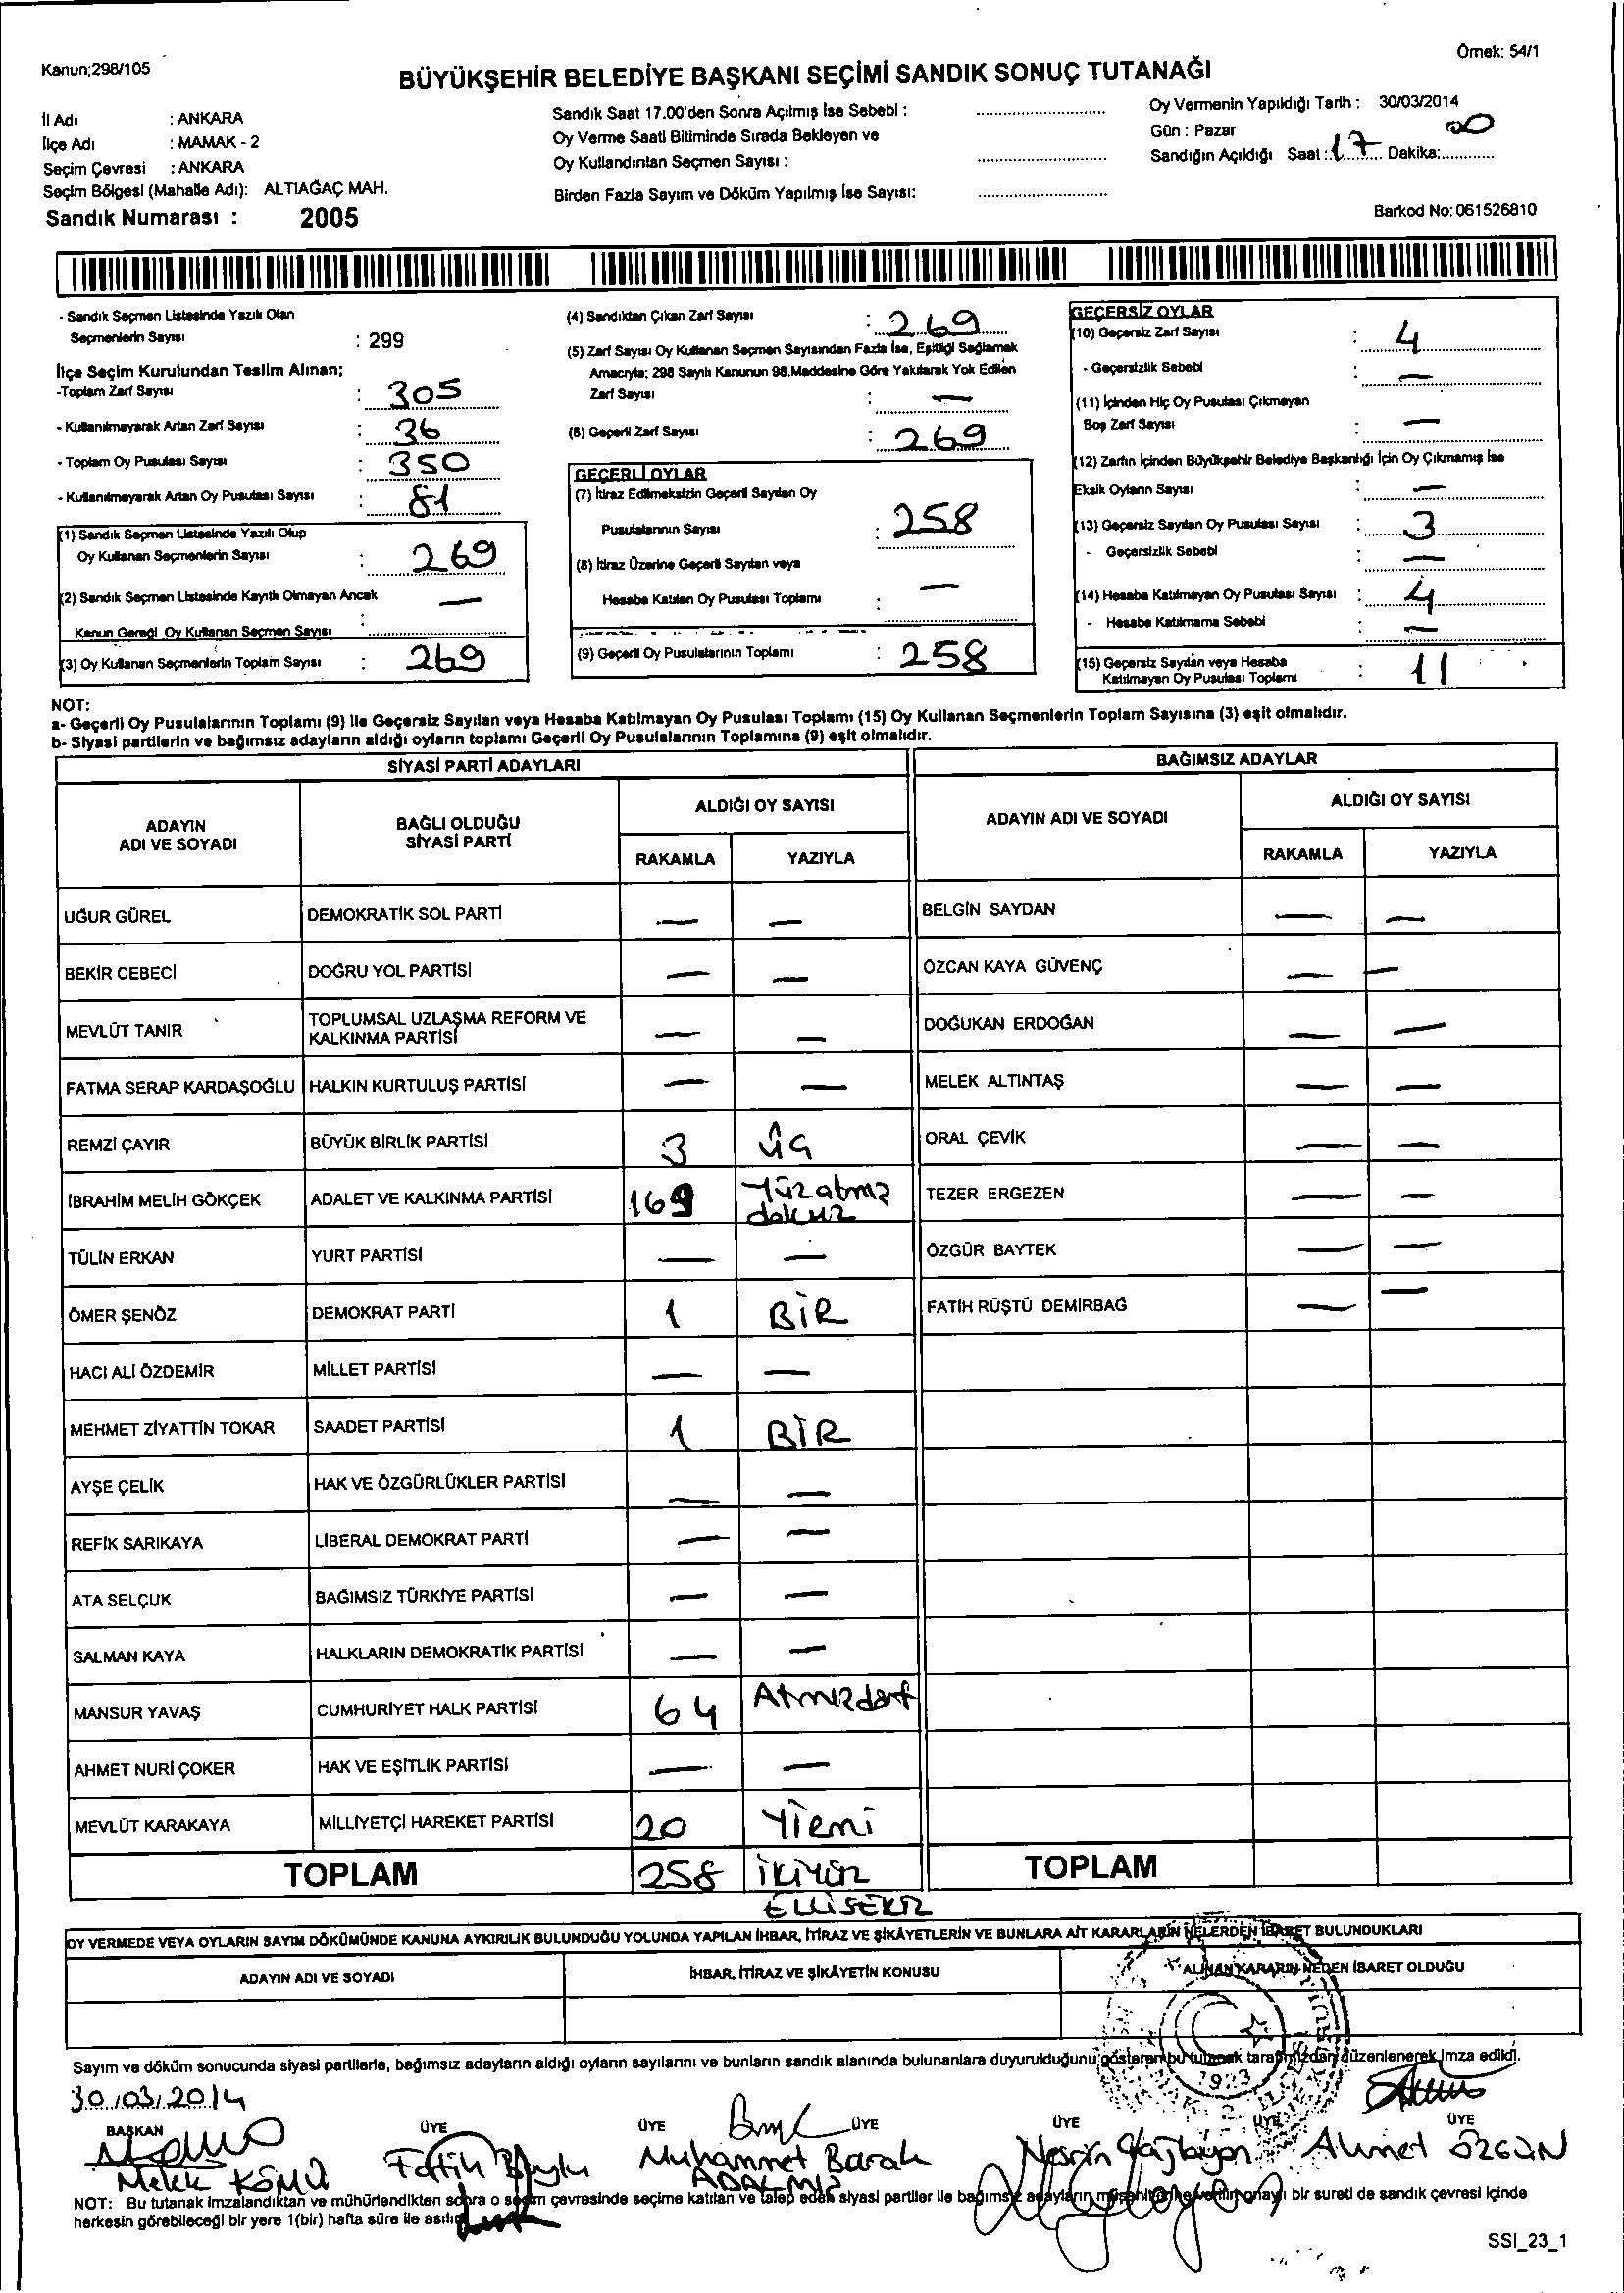 Kanun;298/105
Örnek: 54/1
BÜYÜKŞEHİR BELEDİYE BAŞKANI SEÇİMİ SANDIK SONUÇ TUTANAĞI
İl Adı : ANKARA
İlçe Adı : MAMAK - 2
Seçim Çevresi : ANKARA
Seçim Bölgesi (Mahalle Adı): ALTIAĞAÇ MAH.
Sandık Numarası : 2005
Sandık Saat 17.00'den Sonra Açılmış İse Sebebi :
Oy Verme Saati Bitiminde Sırada Bekleyen ve
Oy Kullandırılan Seçmen Sayısı :
Birden Fazla Sayım ve Döküm Yapılmış İse Sayısı:
Oy Vermenin Yapıldığı Tarih : 30/03/2014
Gün : Pazar
Sandığın Açıldığı Saat : 17 Dakika: 00
Barkod No: 061526810
- Sandık Seçmen Listesinde Yazılı Olan
Seçmenlerin Sayısı : 299
İlçe Seçim Kurulundan Teslim Alınan;
-Toplam Zarf Sayısı : 305
- Kullanılmayarak Artan Zarf Sayısı : 36
- Toplam Oy Pusulası Sayısı : 350
- Kullanılmayarak Artan Oy Pusulası Sayısı : 81
(1) Sandık Seçmen Listesinde Yazılı Olup
Oy Kullanan Seçmenlerin Sayısı : 269
(2) Sandık Seçmen Listesinde Kayıtlı Olmayan Ancak
Kanun Gereği Oy Kullanan Seçmen Sayısı : —
(3) Oy Kullanan Seçmenlerin Toplam Sayısı : 269
(4) Sandıktan Çıkan Zarf Sayısı : 269
(5) Zarf Sayısı Oy Kullanan Seçmen Sayısından Fazla İse, Eşitliği Sağlamak
Amacıyla; 298 Sayılı Kanunun 98.Maddesine Göre Yakılarak Yok Edilen
Zarf Sayısı : —
(6) Geçerli Zarf Sayısı : 269
GEÇERLİ OYLAR
(7) İtiraz Edilmeksizin Geçerli Sayılan Oy
Pusulalarının Sayısı : 258
(8) İtiraz Üzerine Geçerli Sayılan veya
Hesaba Katılan Oy Pusulası Toplamı : —
(9) Geçerli Oy Pusulalarının Toplamı : 258
GEÇERSİZ OYLAR
(10) Geçersiz Zarf Sayısı : 4
- Geçersizlik Sebebi : —
(11) İçinden Hiç Oy Pusulası Çıkmayan
Boş Zarf Sayısı : —
(12) Zarfın İçinden Büyükşehir Belediye Başkanlığı İçin Oy Çıkmamış İse
Eksik Oyların Sayısı : —
(13) Geçersiz Sayılan Oy Pusulası Sayısı : 3
- Geçersizlik Sebebi : —
(14) Hesaba Katılmayan Oy Pusulası Sayısı : 4
- Hesaba Katılmama Sebebi : —
(15) Geçersiz Sayılan veya Hesaba
Katılmayan Oy Pusulası Toplamı : 11
NOT:
a- Geçerli Oy Pusulalarının Toplamı (9) ile Geçersiz Sayılan veya Hesaba Katılmayan Oy Pusulası Toplamı (15) Oy Kullanan Seçmenlerin Toplam Sayısına (3) eşit olmalıdır.
b- Siyasi partilerin ve bağımsız adayların aldığı oyların toplamı Geçerli Oy Pusulalarının Toplamına (9) eşit olmalıdır.
SİYASİ PARTİ ADAYLARI
BAĞIMSIZ ADAYLAR
ADAYIN
ADI VE SOYADI
BAĞLI OLDUĞU
SİYASİ PARTİ
ALDIĞI OY SAYISI
RAKAMLA YAZIYLA
ADAYIN ADI VE SOYADI
ALDIĞI OY SAYISI
RAKAMLA YAZIYLA
UĞUR GÜREL DEMOKRATİK SOL PARTİ — — BELGİN SAYDAN — —
BEKİR CEBECİ DOĞRU YOL PARTİSİ — — ÖZCAN KAYA GÜVENÇ — —
MEVLÜT TANIR TOPLUMSAL UZLAŞMA REFORM VE
KALKINMA PARTİSİ — — DOĞUKAN ERDOĞAN — —
FATMA SERAP KARDAŞOĞLU HALKIN KURTULUŞ PARTİSİ — — MELEK ALTINTAŞ — —
REMZİ ÇAYIR BÜYÜK BİRLİK PARTİSİ 3 üç ORAL ÇEVİK — —
İBRAHİM MELİH GÖKÇEK ADALET VE KALKINMA PARTİSİ 169 Yüzatmız
dokuz TEZER ERGEZEN — —
TÜLİN ERKAN YURT PARTİSİ — — ÖZGÜR BAYTEK — —
ÖMER ŞENÖZ DEMOKRAT PARTİ 1 BİR FATİH RÜŞTÜ DEMİRBAĞ — —
HACI ALİ ÖZDEMİR MİLLET PARTİSİ — —
MEHMET ZİYATTİN TOKAR SAADET PARTİSİ 1 BİR
AYŞE ÇELİK HAK VE ÖZGÜRLÜKLER PARTİSİ — —
REFİK SARIKAYA LİBERAL DEMOKRAT PARTİ — —
ATA SELÇUK BAĞIMSIZ TÜRKİYE PARTİSİ — —
SALMAN KAYA HALKLARIN DEMOKRATİK PARTİSİ — —
MANSUR YAVAŞ CUMHURİYET HALK PARTİSİ 64 Atmızdört
AHMET NURİ ÇOKER HAK VE EŞİTLİK PARTİSİ — —
MEVLÜT KARAKAYA MİLLİYETÇİ HAREKET PARTİSİ 20 Yİrmi
TOPLAM 258 İKİYÜZ
ELLİSEKİZ
TOPLAM
OY VERMEDE VEYA OYLARIN SAYIM DÖKÜMÜNDE KANUNA AYKIRILIK BULUNDUĞU YOLUNDA YAPILAN İHBAR, İTİRAZ VE ŞİKÂYETLERİN VE BUNLARA AİT KARARLARIN NELERDEN İBARET BULUNDUKLARI
ADAYIN ADI VE SOYADI İHBAR, İTİRAZ VE ŞİKÂYETİN KONUSU ALINAN KARARIN NEDEN İBARET OLDUĞU
1923
Sayım ve döküm sonucunda siyasi partilerle, bağımsız adayların aldığı oyların sayılarını ve bunların sandık alanında bulunanlara duyurulduğunu gösteren bu tutanak tarafımızdan düzenlenerek imza edildi.
30/03/2014
BAŞKAN ÜYE ÜYE ÜYE ÜYE ÜYE ÜYE
Melek KÖMÜ Fatih Muhammet Burak Nesrin Ahmet ÖZGÜN
NOT: Bu tutanak imzalandıktan ve mühürlendikten sonra o seçim çevresinde seçime katılan ve talep eden siyasi partiler ile bağımsız adayların müşahitlerine verilir onaylı bir sureti de sandık çevresi içinde
herkesin görebileceği bir yere 1(bir) hafta süre ile asılır.
SSI_23_1